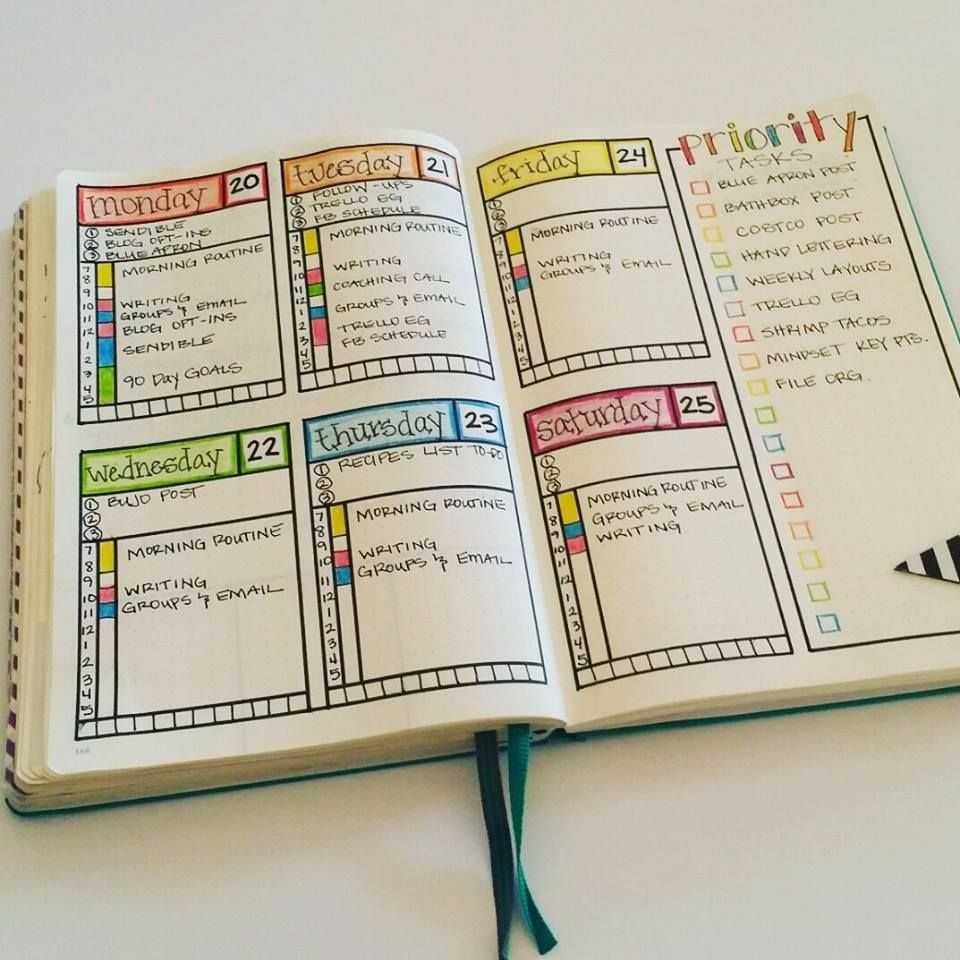 monday 20
① SENDIBLE
② BLOG OPT-INS
③ BLUE APRON
7
8 MORNING ROUTINE
9
10 WRITING
11 GROUPS & EMAIL
12 BLOG OPT-INS
1 SENDIBLE
2
3
4 90 DAY GOALS
5
tuesday 21
① FOLLOW-UPS
② TRELLO EG
③ FB SCHEDULE
7 MORNING ROUTINE
8
9
10 WRITING
11 COACHING CALL
12 GROUPS & EMAIL
1
2 TRELLO EG
3 FB SCHEDULE
4
5
wednesday 22
① BUJO POST
②
③
7 MORNING ROUTINE
8
9
10 WRITING
11 GROUPS & EMAIL
12
1
2
3
4
5
thursday 23
① RECIPES LIST TO-DO
②
③
7 MORNING ROUTINE
8
9
10 WRITING
11 GROUPS & EMAIL
12
1
2
3
4
5
friday 24
①
②
③
7 MORNING ROUTINE
8
9 WRITING
10 GROUPS & EMAIL
11
12
1
2
3
4
5
saturday 25
①
②
③
7 MORNING ROUTINE
8
9 GROUPS & EMAIL
10 WRITING
11
12
1
2
3
4
5
priority
TASKS
BLUE APRON POST
BATHBOX POST
COSTCO POST
HAND LETTERING
WEEKLY LAYOUTS
TRELLO EG
SHRIMP TACOS
MINDSET KEY PTS.
FILE ORG.